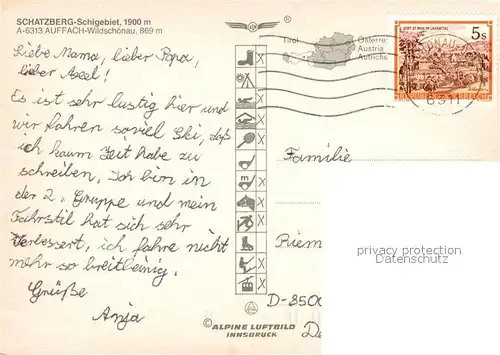 SCHATZBERG-Schigebiet, 1900 m
A-6313 AUFFACH-Wildschönau, 869 m
Liebe Mama, lieber Papa,
lieber Axel!
Es ist sehr lustig hier und
wir fahren soviel Ski, daß
ich kaum Zeit habe zu
schreiben. Ich bin in
der 2. Gruppe und mein
Fahrstil hat sich sehr
verbessert, ich fahre nicht
mehr so breitbeinig.
Grüße
Anja
®
Tirol
Österre
Austria
Autriche
5s
REPUBLIK ÖSTERREICH
6311
Familie
Riem
privacy protection
D-8500
© ALPINE LUFTBILD
INNSBRUCK